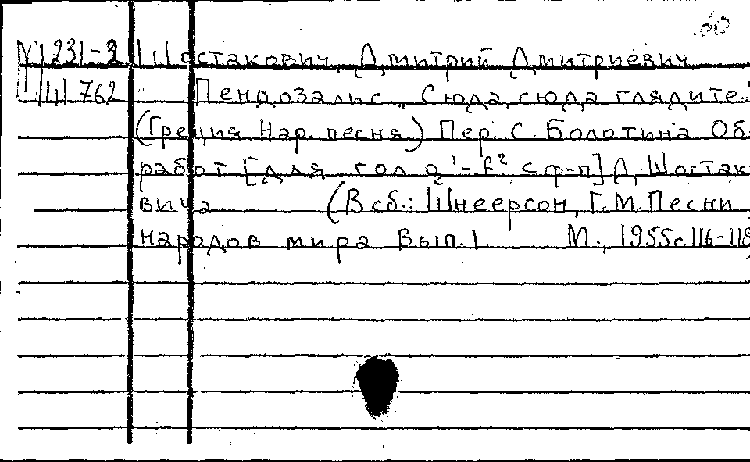 231-2 Шостакович, Дмитрий Дмитриевич
762 Пендозалис „Сюда, сюда глядите."
(Греция Нар. песня.) Пер. С. Болотина Об-
работ. [для гол. a¹-f² с ф-п] Д. Шостако-
вича (В сб.: Шнеерсон, Г.М. Песни
народов мира Вып. 1 М., 1955 с. 116-118